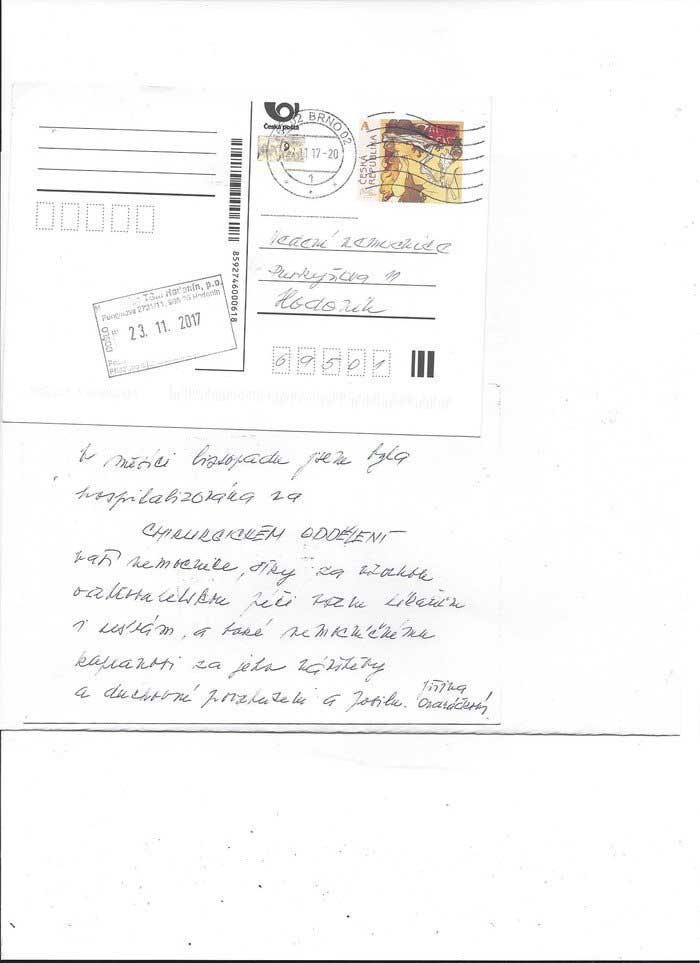 Česká pošta
BRNO 02
11 17-20
1
A
ČESKÁ
REPUBLIKA
Vedení nemocnice
Purkyňova 11
Hodonín
69501
8592746000618
TGM Hodonín, p.o.
Purkyňova 2731/11, 695 26 Hodonín
DOŠLO
23. 11. 2017
V měsíci listopadu jsem byla
hospitalizována na
CHIRURGICKÉM ODDĚLENÍ
vaší nemocnice, díky za
ošetřovatelskou péči všem lékařům
i sestrám, a také nemocničnímu
kaplanovi za jeho návštěvy
a duchovní povzbuzení a posilu. Jiřina